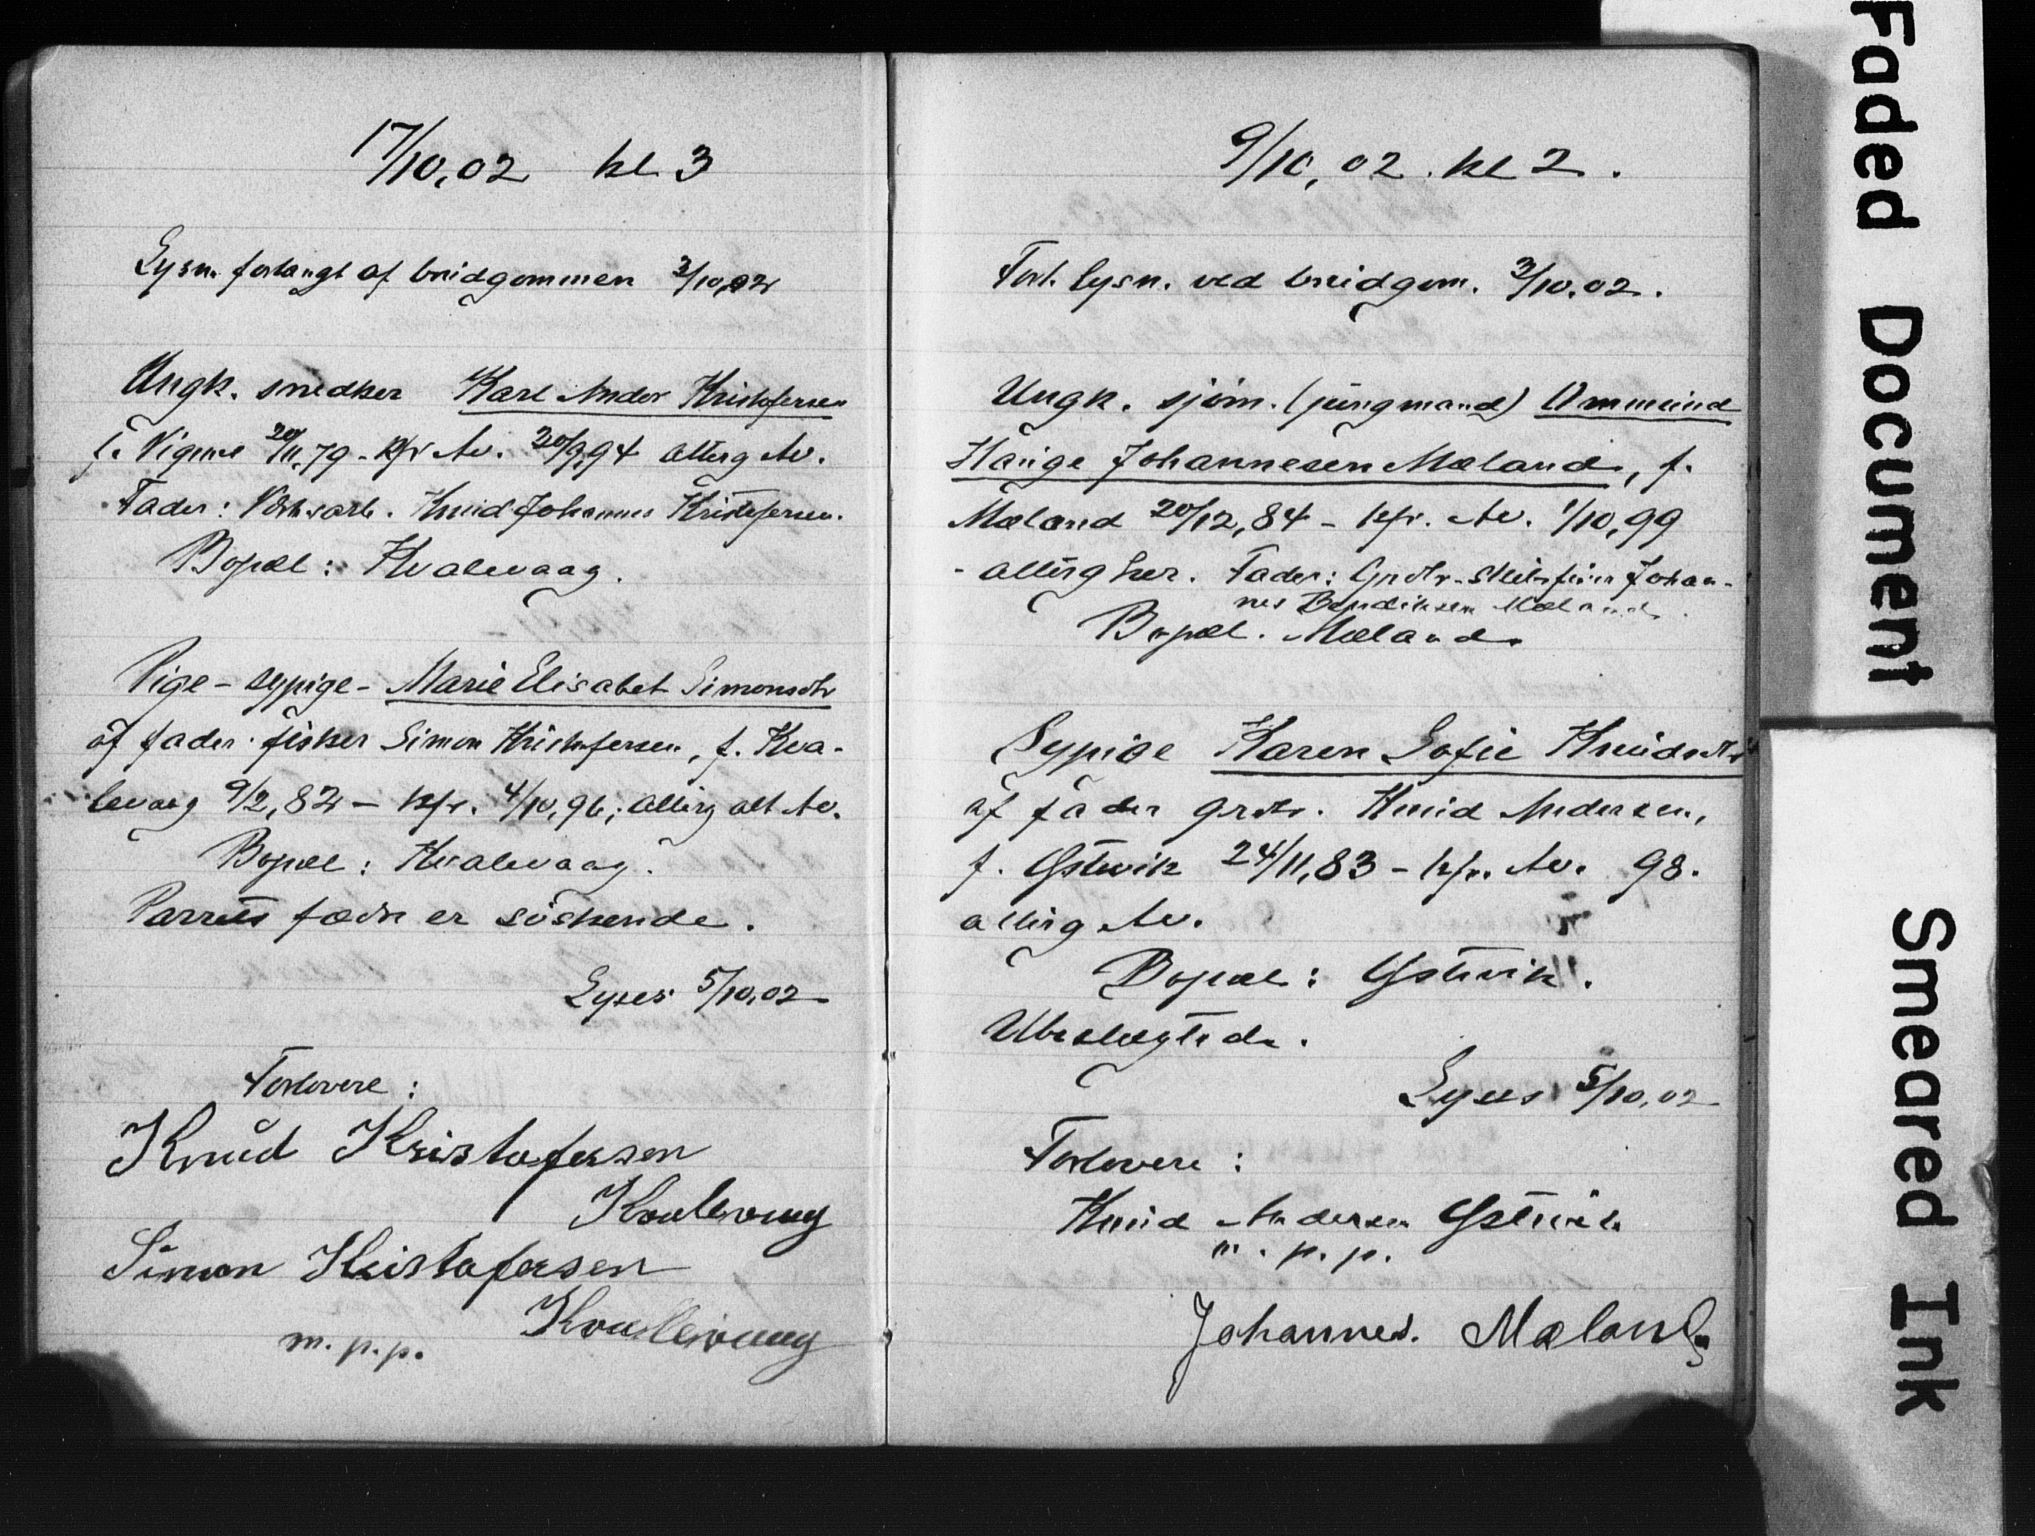 17/10,02 kl 3
Lysn. forlangt af brudgommen 3/10,02
Ungk. snedker Karl Andor Kristofersen
f. Vigene 20/11,79 - kfr Av. 20/9,94 attirg Av.
Fader: Knud Johannes Kristofersen.
Bopæl: Kvalevaag.
Pige - sypige - Marie Elisabet Simonsdtr
af fader fisker Simon Kristofersen, f. Kva-
levaag 9/2,82 - kfr. 4/10,96; att Av.
Bopæl: Kvalevaag.
Parrets fædre er söskende.
Lyses 5/10,02
Forlovere:
Knud Kristofersen
Kvalevaag
Simon Kristofersen
Kvalevaag
m.p.p.
9/10,02. kl 2.
Forl. lysn. ved brudgom. 3/10,02.
Ungk. sjöm. (jungmand) Ommund
Hauge Johannesen Mæland, f.
Mæland 20/12,84 - kfr. Av. 1/10,99
- her. Fader: Johan-
nes Bendiksen Mæland
Bopæl. Mæland.
Sypige Karen Sofie Knudsdtr
af fader grdbr. Knud Andersen,
f. Gstevik 24/11,83 - kfr. Av. 98.
Av.
Bopæl: Gstevik.
Ubeslægtede.
Lyses 5/10,02
Forlovere:
Knud Andersen Gstevik
m.p.p.
Johannes. Mæland
Faded Document
Smeared Ink